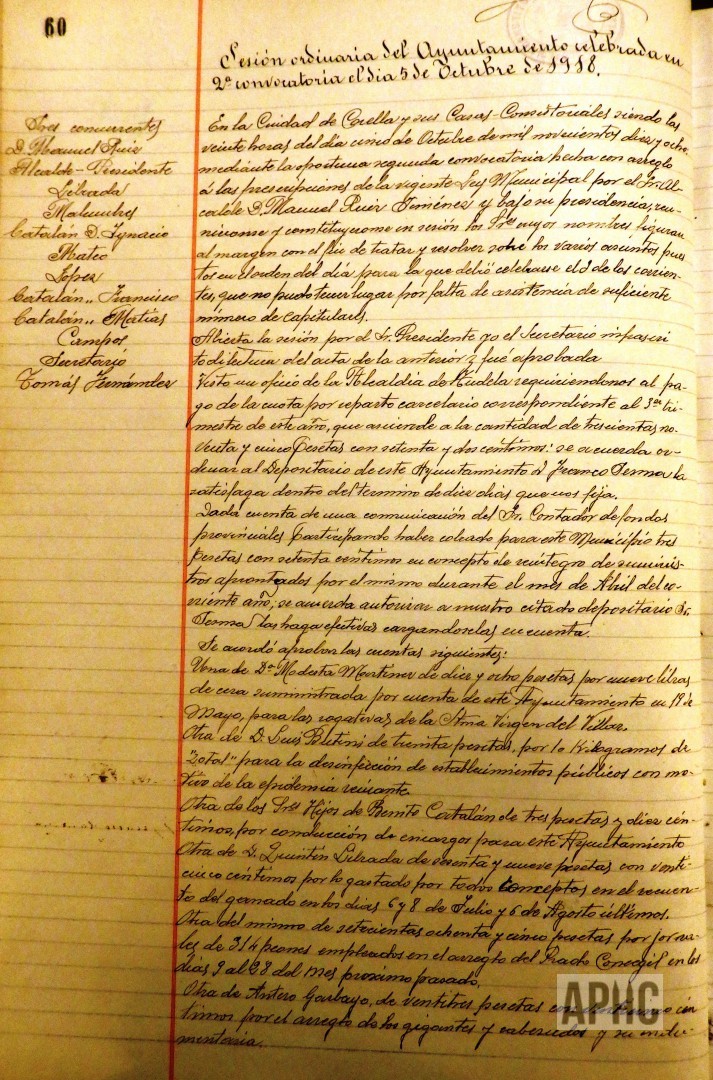 60
Sesión ordinaria del Ayuntamiento celebrada en
2ª convocatoria el día 5 de Octubre de 1918.
Sres concurrentes
D. Manuel Ruiz
Alcalde-Presidente
Librada
Malumbres
Catalán D. Ignacio
Mateo
López
Catalán „ Francisco
Catalán „ Matías
Campos
Secretario
Tomás Fernández
En la Ciudad de Corella y sus Casas-Consistoriales siendo las
veinte horas del día cinco de Octubre de mil novecientos diez y ocho
mediante la oportuna segunda convocatoria hecha con arreglo
á las prescripciones de la vigente Ley Municipal por el Sr. Al
calde D. Manuel Ruiz Jiménez y bajo su presidencia, reu-
niéronse y constituyeronse en sesión los Sres cuyos nombres figuran
al margen con el fin de tratar y resolver sobre los varios asuntos pues
tos en el orden del día para la que debió celebrarse el 3 de los corrien-
tes, que no pudo tener lugar por falta de asistencia de suficiente
número de capitulares.
Abierta la sesión por el Sr. Presidente yo el Secretario infrascri
to di lectura del acta de la anterior y fué aprobada
Visto un oficio de la Alcaldía de Tudela requiriendonos al pa-
go de la cuota por reparto carcelario correspondiente al 3er tri-
mestre de este año, que asciende a la cantidad de trescientas no-
venta y cinco pesetas con setenta y dos centimos: se acuerda or-
denar al Depositario de este Ayuntamiento Dn Franco Serma la
satisfaga dentro del termino de diez días que nos fija.
Dada cuenta de una comunicación del Sr. Contador de fondos
provinciales participando haber cobrado para este Municipio tres
pesetas con setenta centimos en concepto de reintegro de suminis-
tros aprontados por el mismo durante el mes de Abril del co-
rriente año; se acuerda autorizar a nuestro citado depositario Sr.
Serma las haga efectivas cargandoselas en cuenta.
Se acordó aprobar las cuentas siguientes:
Una de Dª. Modesta Martínez de diez y ocho pesetas por nueve libras
de cera suministrada por cuenta de este Ayuntamiento en 19 de
Mayo, para las rogativas de la Stma Virgen del Villar.
Otra de D. Luis de treinta pesetas por 10 Kilogramos de
"Zotal" para la desinfección de establecimientos públicos con mo-
tivo de la epidemia reinante.
Otra de los Sres Hijos de Benito Catalán de tres pesetas y diez cén-
timos, por conducción de encargos para este Ayuntamiento
Otra de D. Quintín Librada de y nueve pesetas con venti-
cinco céntimos por lo gastado por todos conceptos en el recuen-
to del ganado en los días 6 y 8 de Julio y 6 de Agosto últimos.
Otra del mismo de setecientas ochenta y cinco pesetas por jorna-
les de 314 peones empleados en el arreglo del Prado Concejil en los
días 9 al 28 del mes proximo pasado.
Otra de Antero Garbayo, de ventitres pesetas cén-
timos por el arreglo de los gigantes y cabezudos y su indu-
mentaria.
APHC